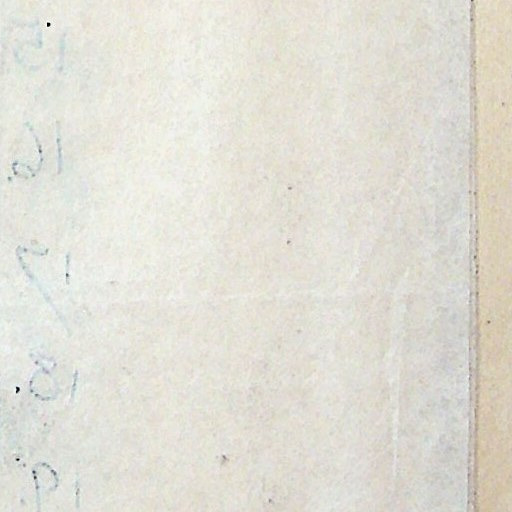 15
16
17
18
19